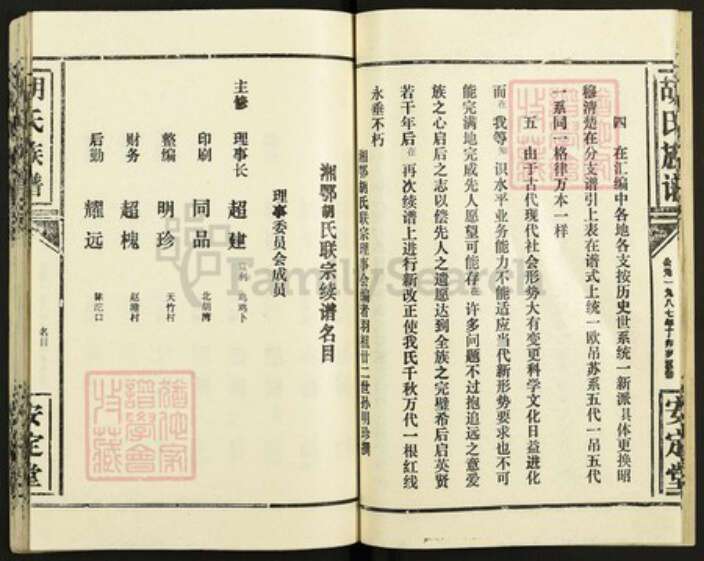 胡氏族谱
公元一九八七年
安定堂
四 在汇编中各地各支按历史世系统一新派具体更换昭
穆清楚在分支谱引上表在谱式上统一欧吊苏系五代一吊五代
一系同一格律万本一样
五 由于古代现代社会形势大有变更科学文化日益进化
而在我等识水平业务能力不能适应当代新形势要求也不可
能完满地完成先人愿望可能存在许多问题不过抱追远之意爱
族之心启后之志以偿先人之遗愿达到全族之完璧希后启英贤
若干年后在再次续谱上进行新改正使我氏千秋万代一根红线
永垂不朽
湘鄂胡氏联宗理事会编者羽祖廿二世孙明珍撰
湘鄂胡氏联宗续谱名目
理事委员会成员
主修 理事长 超建 鸡鸡卜
印刷 同品 北胡湾
整编 明珍 天竹村
财务 超槐 赵塘村
后勤 耀远 陈沱口
胡氏族谱
名目
安定堂
FamilySearch